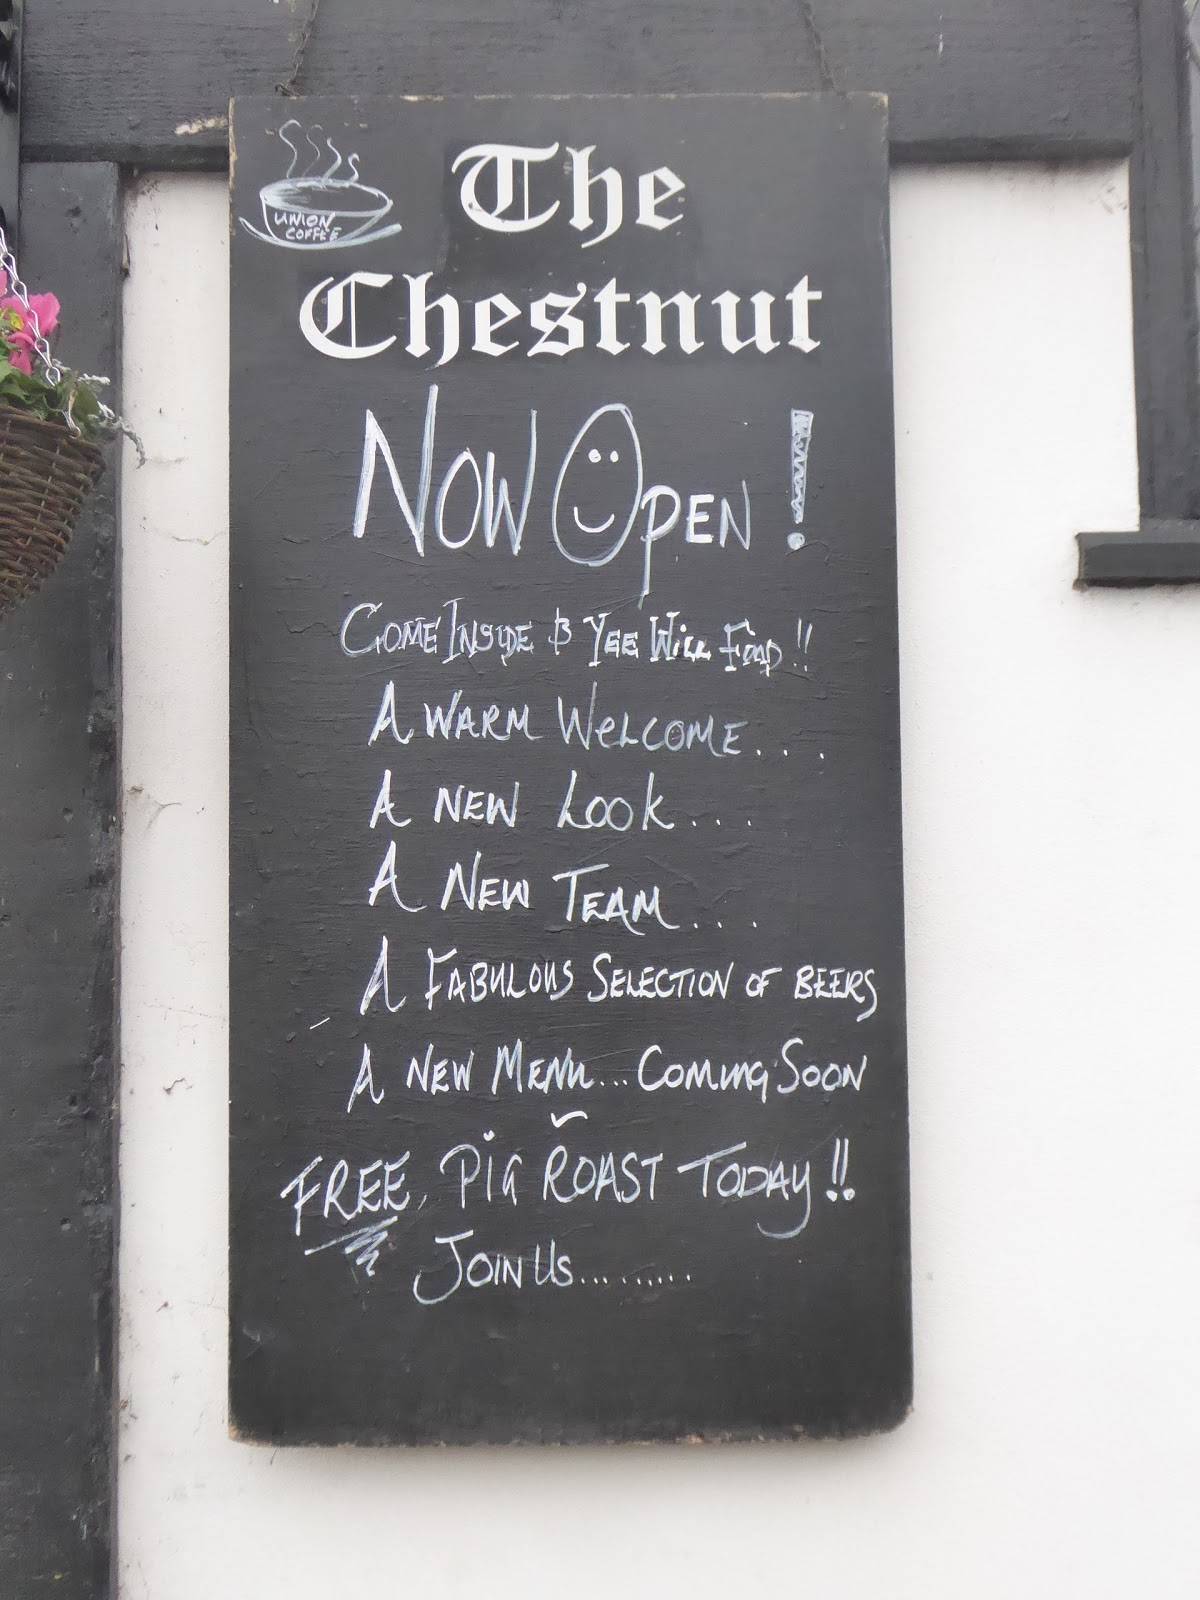 UNION
COFFEE
The
Chestnut
NOW OPEN !
COME INSIDE & YEE WILL FIND !!
A WARM WELCOME....
A NEW LOOK...
A NEW TEAM....
A FABULOUS SELECTION OF BEERS
A NEW MENU... COMING SOON
FREE, PIG ROAST TODAY !!
JOIN US.........